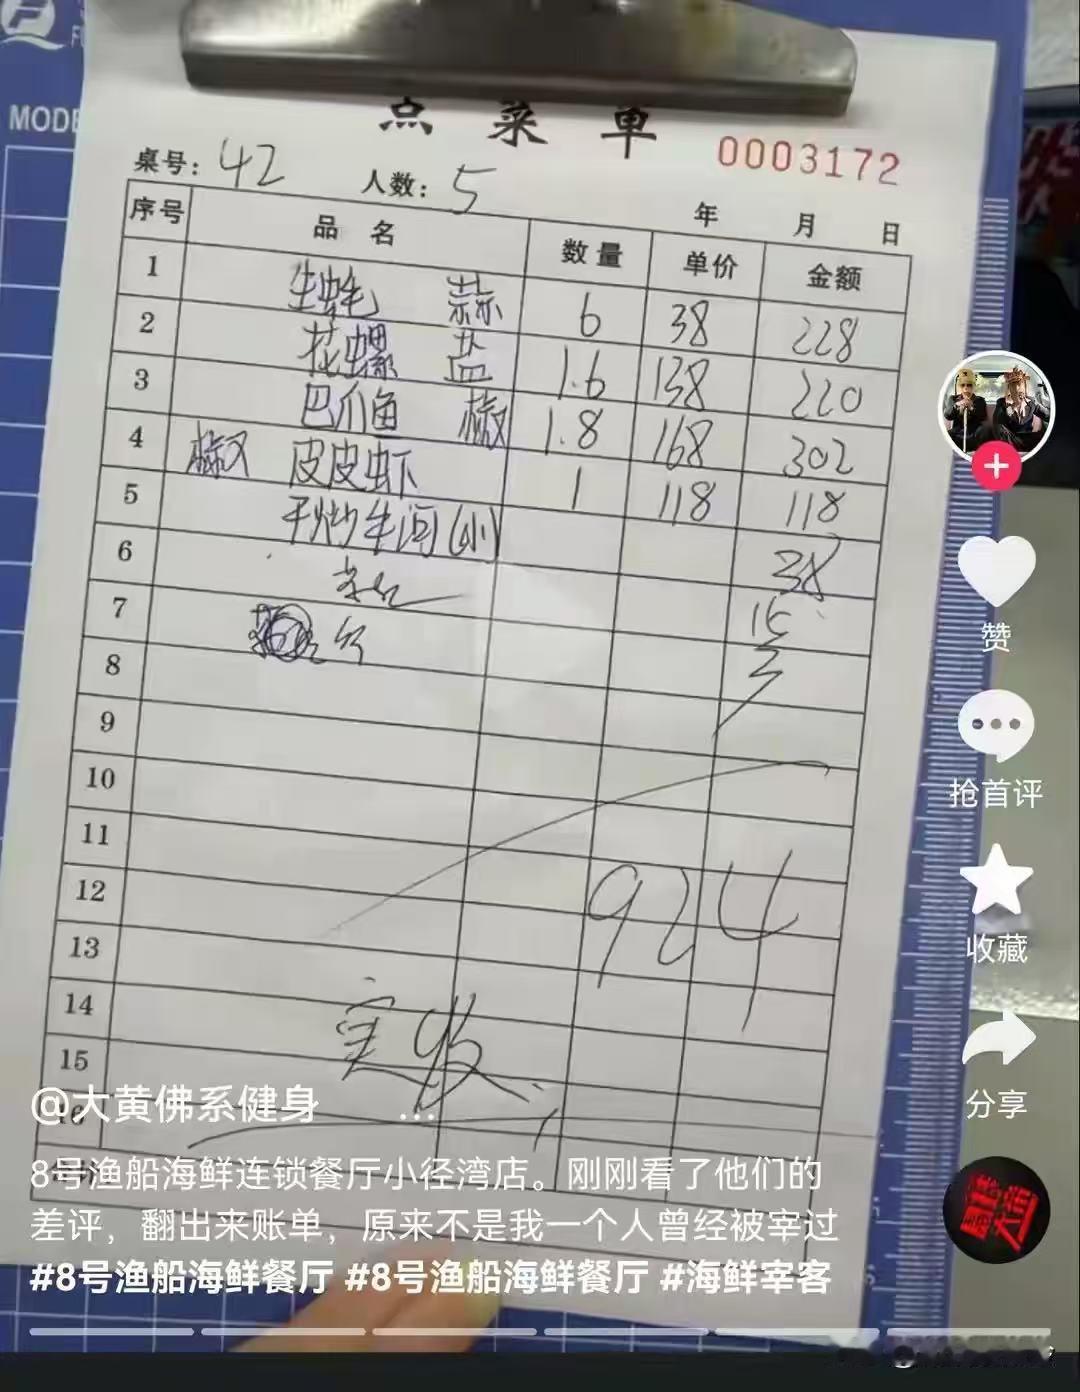 MODE
点菜单
0003172
桌号: 42 人数: 5
年 月 日
序号 品名 数量 单价 金额
1 生蚝 蒜 6 38 228
2 花螺 盐 1.6 138 220
3 巴爪鱼 椒 1.8 168 302
4 椒 皮皮虾 1 118 118
5 干炒牛河(小) 38
6 15
7 3
8
9
10
11
12 924
13
14 实收
15
16
@大黄佛系健身 ...
8号渔船海鲜连锁餐厅小径湾店。刚刚看了他们的
差评，翻出来账单，原来不是我一个人曾经被宰过
#8号渔船海鲜餐厅 #8号渔船海鲜餐厅 #海鲜宰客
赞
抢首评
收藏
分享